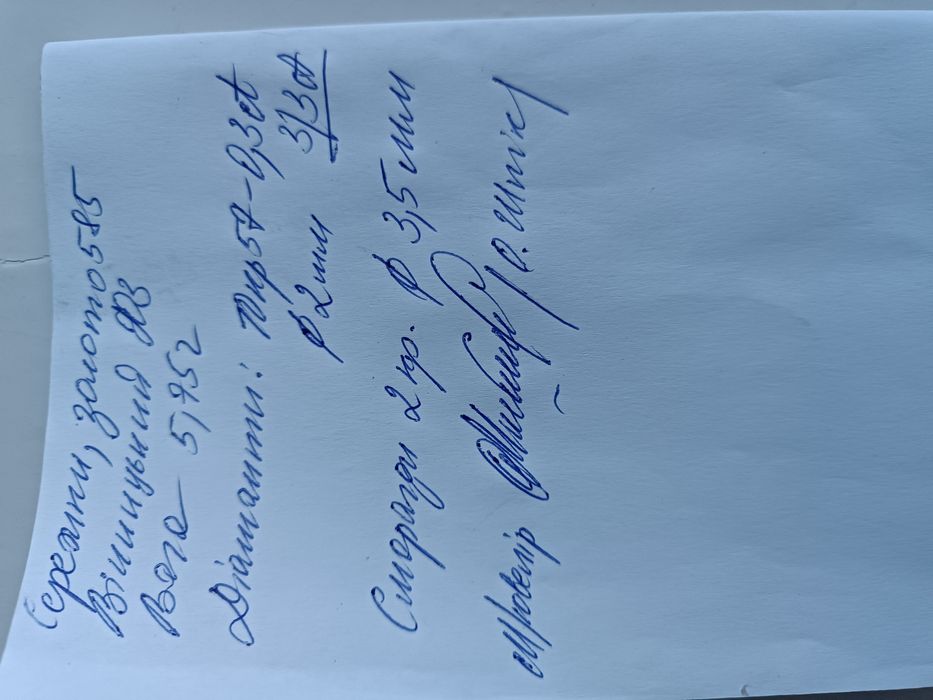 Сережки, золото 585
Вінницький ЯЗ
Вага 5,95 г
Діаманти: 10кр57 - 0,3 ct
Ø 2 мм 3/3 A
Смарагди 2 кр. Ø 3,5 мм
Ювелір